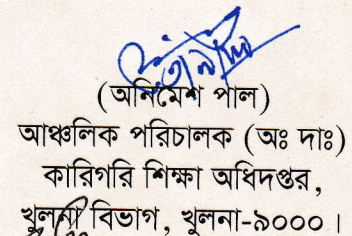 (অনিমেশ পাল)
আঞ্চলিক পরিচালক (অঃ দাঃ)
কারিগরি শিক্ষা অধিদপ্তর,
খুলনা বিভাগ, খুলনা-৯০০০।